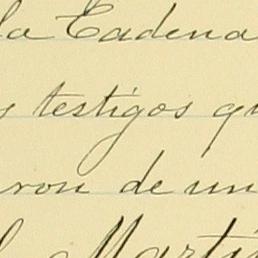 la Cadena
s testigos qu
ron de un
Martí